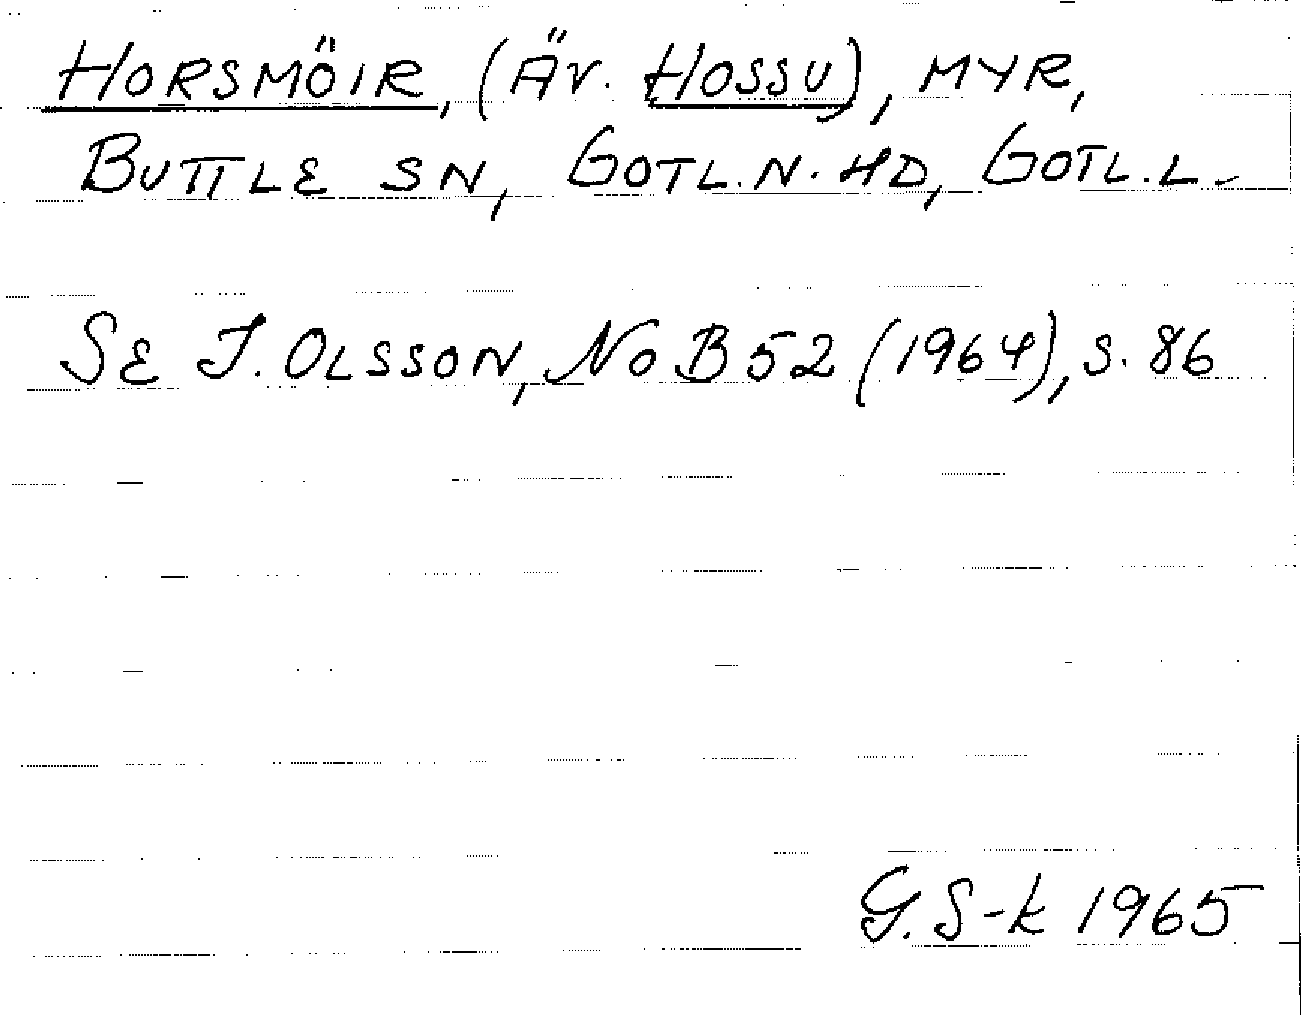 HORSMÖIR, (ÄV. HOSSU), MYR,
BUTTLE SN, GOTL.N.HD, GOTL.L.
SE I. OLSSON, NoB 52 (1964), S. 86
G.S-k 1965